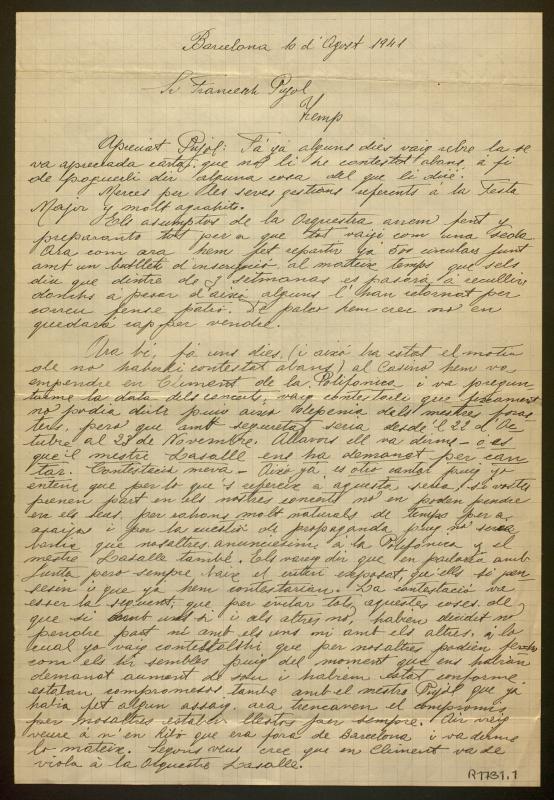 Barcelona 10 d'Agost 1941
Sr Francesch Pujol
Tremp
Apreciat Pujol: Fá ja alguns dies vaig rebre la se
va apreciada carta, que no li he contestat abans, á fi
de poguerli dir alguna cosa del que li diré.
Merces per les seves gestions referents á la Festa
Major y molt agrahits.
Els asumptos de la Orquestra anem fent y
preparanto tot per a que tot vaiji com una seda.
Ara com ara hem fet repartir ja 500 circulars junt
amb un butlletí d'inscripció al mateix temps que sels
diu que dintre de 3 setmanas es pasará á recullirlo
donchs á pesar d'aixó alguns l'han retornat per
correu sense patró. De palco hem crec no en
quedará cap per vendre.
Ara bé, fá uns dies, (i aixó ha estat el motiu
de no haberhi contestat abans) al Casino hem va
empendre en Climent de la Polifónica i va pregun
tarme la data dels concerts, vaig contestarli que fixament
no podia dirli puig aixó depenia dels mestres foras
ters, peró que amb seguretat seria desde l 22 d'Oc
tubre al 23 de Novembre. Allavors ell va dirme - ó es
que'l mestre Lasalle ens ha demanat per can
tar. Contestació meva - Aixó ja es otro cantar puig jo
entenc que per lo que's refereix á aquesta seria, si vostés
prenen part en els nostres concerts no en poden pendre
en els seus per rahons molt naturals de temps per a
asaijos i per la cuestió de propaganda puig no seria
bonic que nosaltres anunciesim á la Polifónica y el
mestre Lasalle també. Els vareig dir que en parlaria amb
Junta pero sempre baix el criteri exposat, qu'ells s'ho pen
sesin i que ja hem contestarian. La contestació va
esser la seguent, que per evitar tots aquestes coses de
que si amb uns si i als altres no, habien decidit no
pendre part ni amb els uns ni amb els altres, á lo
cual jo vaig contestalshi que per nosaltres podien ferho
com els hi sembles puig del moment que ens habian
demanat aument de sou i habiem estat conforme
estaban compromesos també amb el mestre Pujol que ja
habia fet algun assaig, ara trencaven el compromís
per nosaltres estabem llestos per sempre. Air vaig
veure á n'en Ribó que era fora de Barcelona i va dirme
lo mateix. Segons veus crec que en Climent va de
viola á la Orquestra Lasalle.
R1731.1